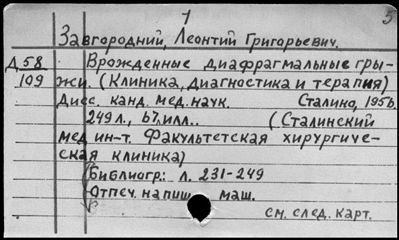 1 5
Завгородний, Леонтий Григорьевич.
Д 58 Врожденные диафрагмальные гры-
109 жи. (Клиника, диагностика и терапия)
Дисс. канд. мед. наук. Сталино, 1956.
249 л., илл.. (Сталинский
мед. ин-т. Факультетская хирургиче-
ская клиника)
Библиогр.: л. 231-249
Отпеч. на пиш. маш.
см. след. карт.